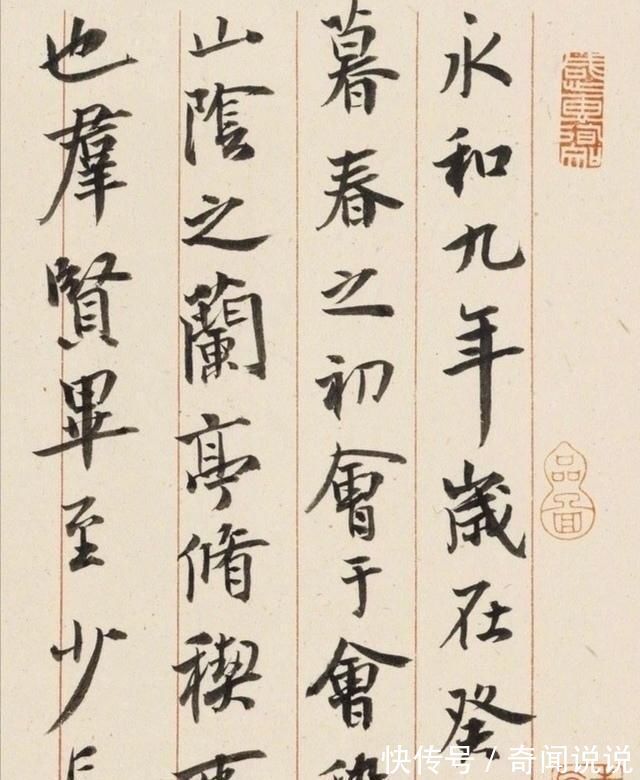 永和九年歲在癸
暮春之初會于會稽
山陰之蘭亭脩稧事
也羣賢畢至少長
快传号/奇闻说说